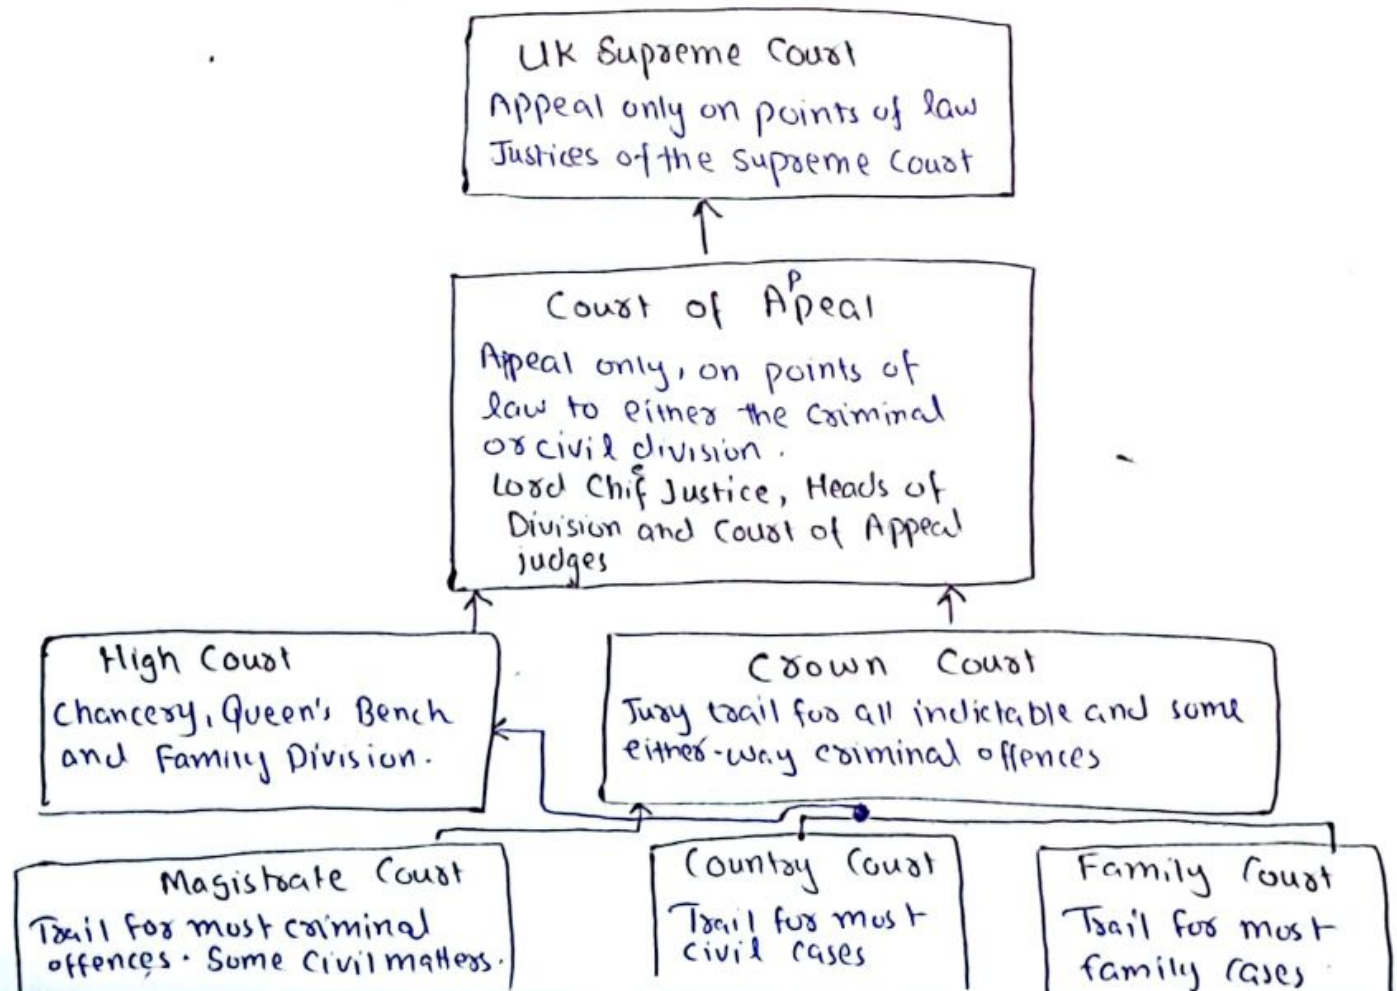 UK Supreme Court
Appeal only on points of law
Justices of the Supreme Court
Court of Appeal
Appeal only, on points of
law to either the criminal
or civil division.
Lord Chief Justice, Heads of
Division and Court of Appeal
judges
High Court
Chancery, Queen's Bench
and Family Division.
Crown Court
Jury trail for all indictable and some
either-way criminal offences
Magistrate Court
Trail for most criminal
offences. Some Civil matters.
Country Court
Trail for most
civil cases
Family Court
Trail for most
family cases